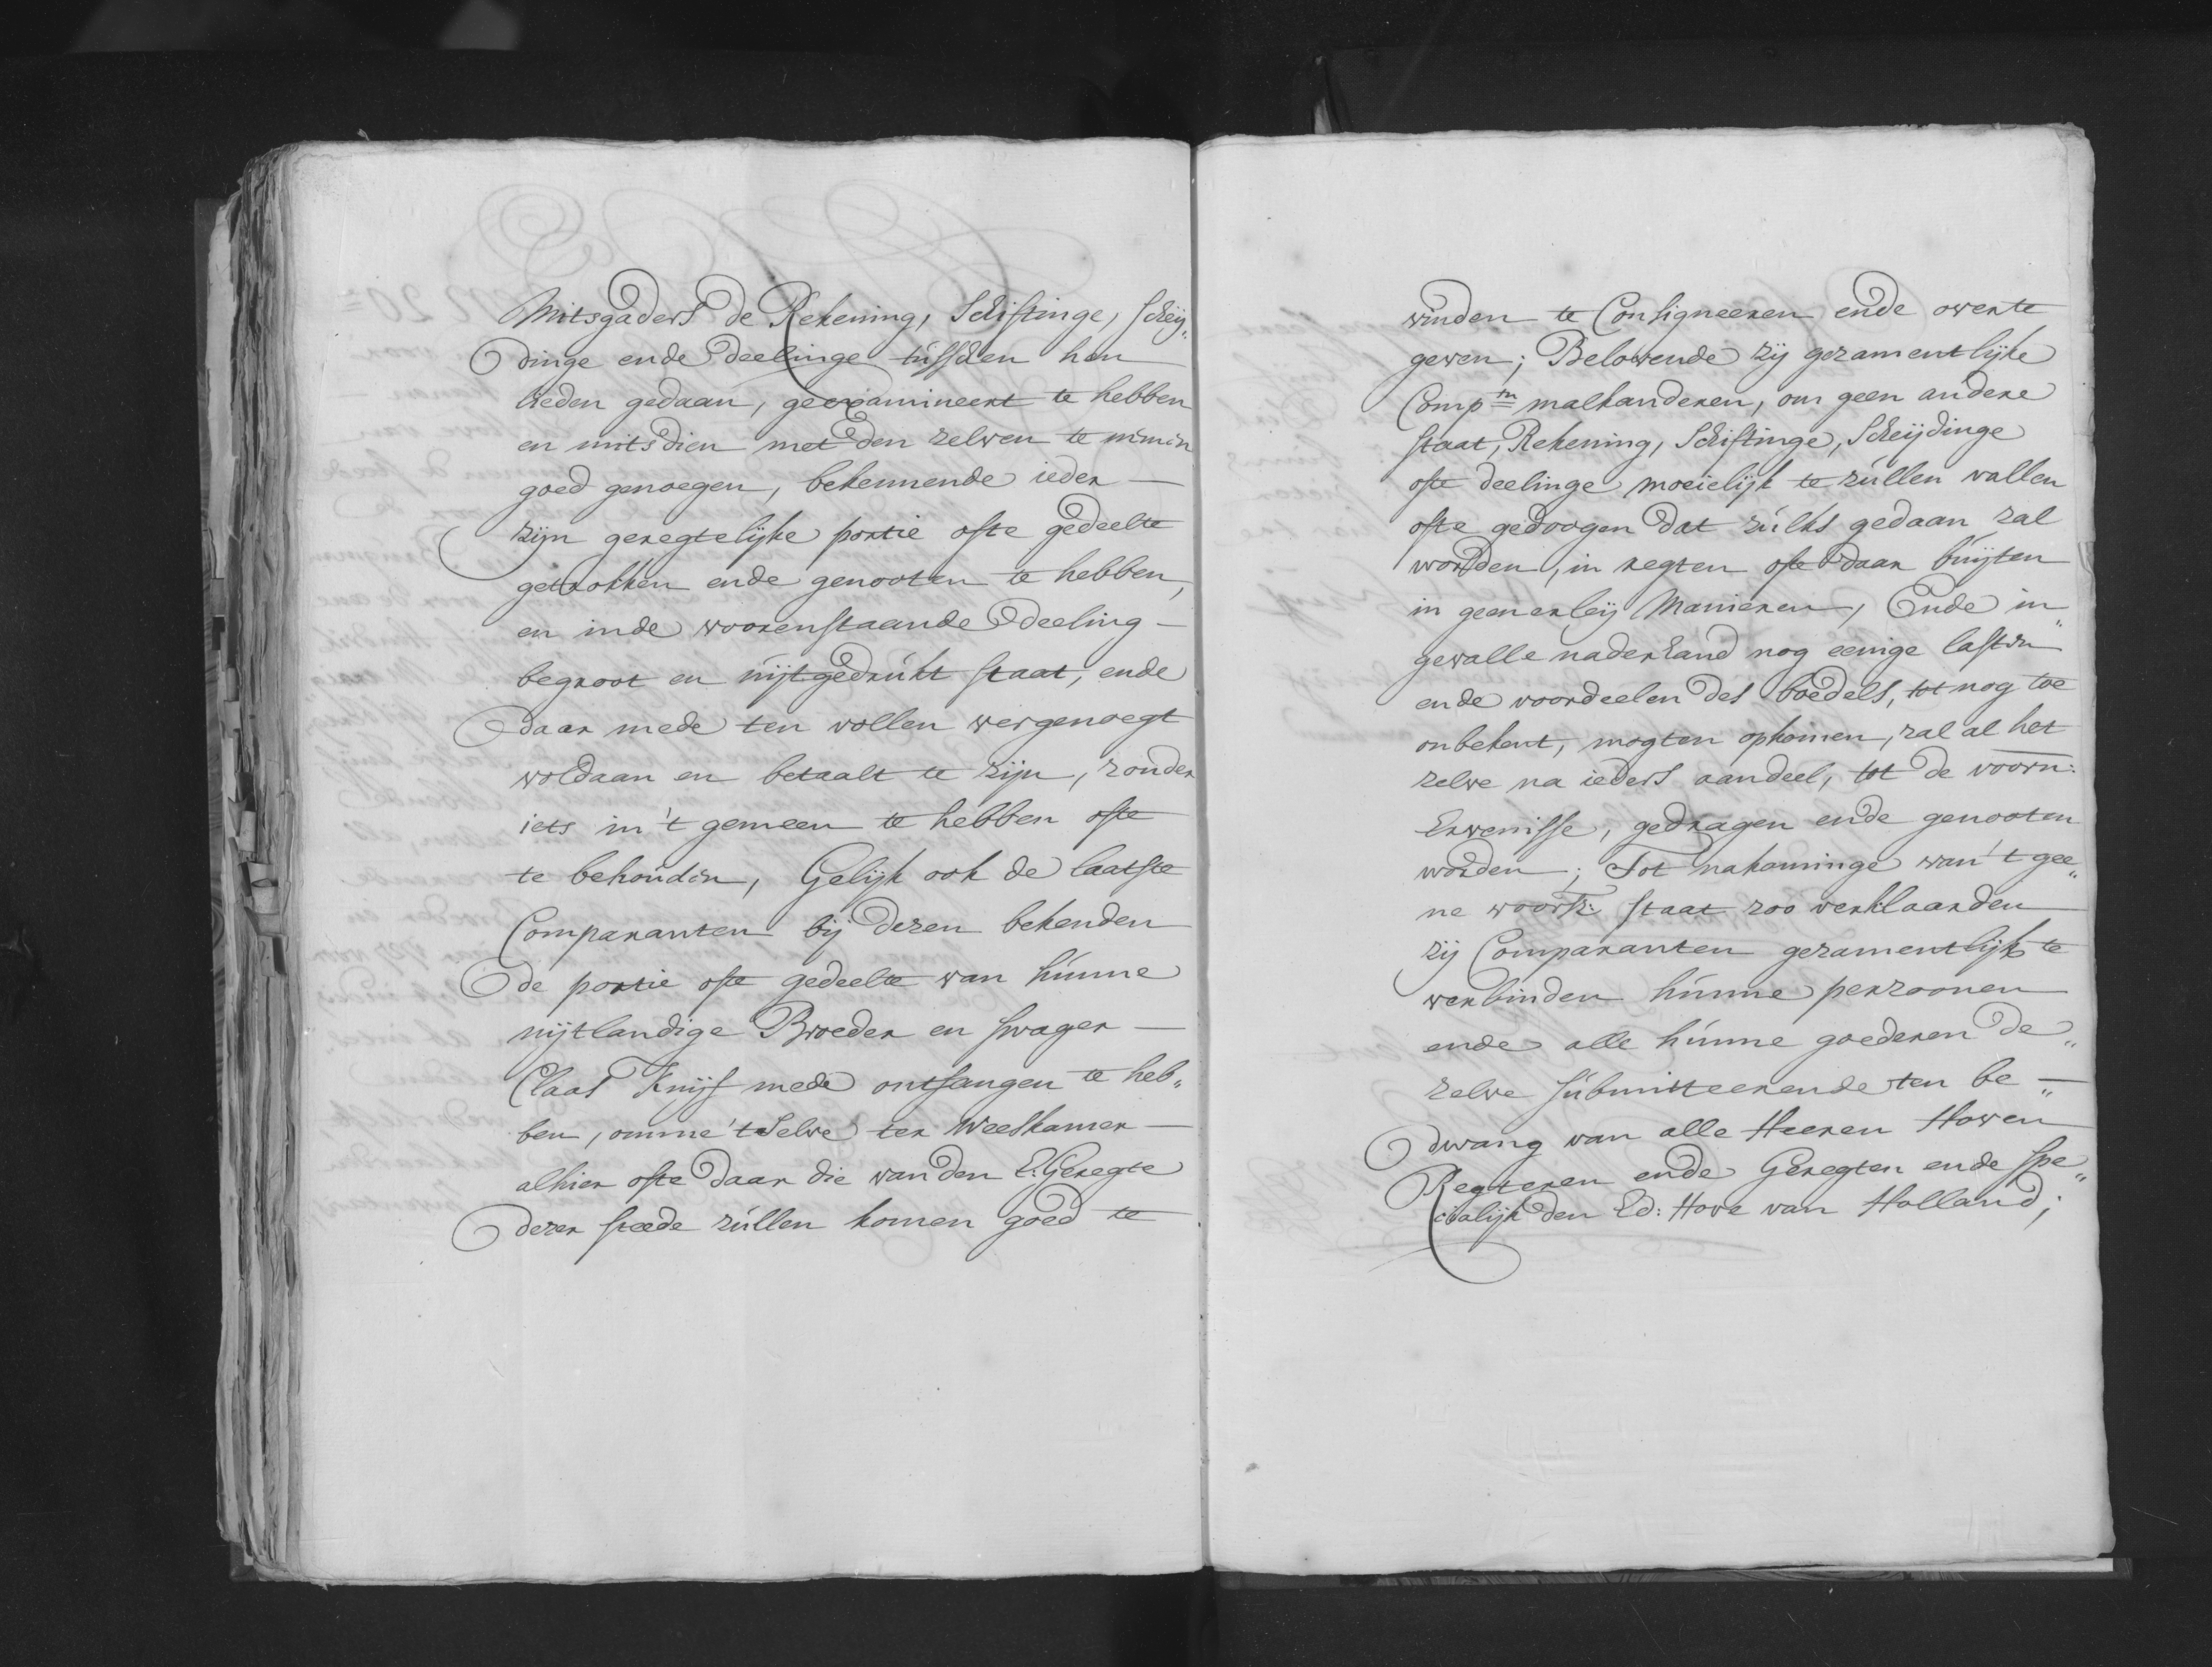 Mitsgaders de Rekening, Schiftinge, scheij„
dinge ende deelinge tusschen hen
lieden gedaan, geexamineert te hebben
en mitsdien met den zelven te nemen
goed genoegen, bekennende ieder —
zijn geregtelijke portie ofte gedeelte
getrokken ende genooten te hebben,
en inde voorenstaande deeling —
begroot en uijtgedrukt staat, ende
daar mede ten vollen vergenoegt
voldaan en betaalt te zijn, zonder
iets in 't gemeen te hebben ofte
te behouden, Gelijk ook de laatste
Comparanten bij dezen bekenden
de portie ofte gedeelte van hunne
uijtlandige Broeder en swager —
Claas Knijf mede ontfangen te heb„
ben, omme 't selve ter Weeskamer —
alhier ofte daar die van den E. Geregte
dezer steede zullen komen goed te
vinden te Consigneeren ende over te
geven; Belovende zij gezamentlijke
Comp.tn malkanderen, om geen andere
staat, Rekening, Schiftinge, Scheijdinge
ofte deelinge moeielijk te zullen vallen
ofte gedoogen dat zulks gedaan zal
worden, in regten ofte daar buijten
in geenerleij Manieren, Ende in„
gevalle naderhand nog eenige lasten
ende voordeelen des boedels, tot nog toe
onbekent, mogten opkomen, zal al het
zelve na ieders aandeel, tot de voorn:
Ervenisse, gedragen ende genooten
worden; Tot nakominge van 't gee„
ne voorsz: staat zoo verklaarden
zij Comparanten gezamentlijk te
verbinden hunne perzoonen
ende alle hunne goederen de„
zelve submitteerende ten be„ —
dwang van alle Heeren Hoven
Regteren ende Geregten ende spe„
cialijk den Ed: Hove van Holland;